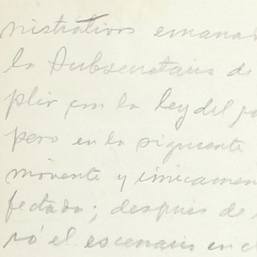 nistrativos emana
la Subsecretario de
plir con la ley del
pero en la siguiente
movente y únicamen
fectado; después de
ró el escenario en